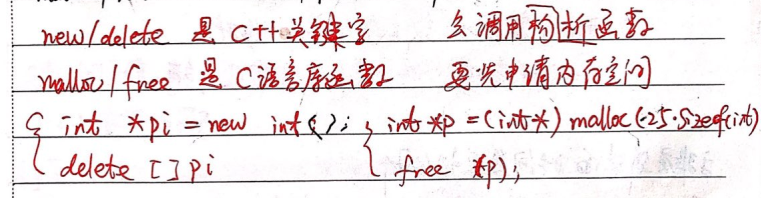 new/delete 是 C++关键字 会调用构析函数
malloc/free 是C语言库函数 要先申请内存空间
{ int *pi = new int(); { int *p = (int*) malloc(25·sizeof(int)
delete []pi free (p);